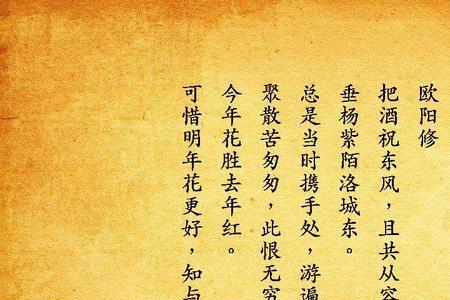 欧阳修
把酒祝东风，且共从容
垂杨紫陌洛城东。
总是当时携手处，游遍
聚散苦匆匆，此恨无穷
今年花胜去年红。
可惜明年花更好，知与